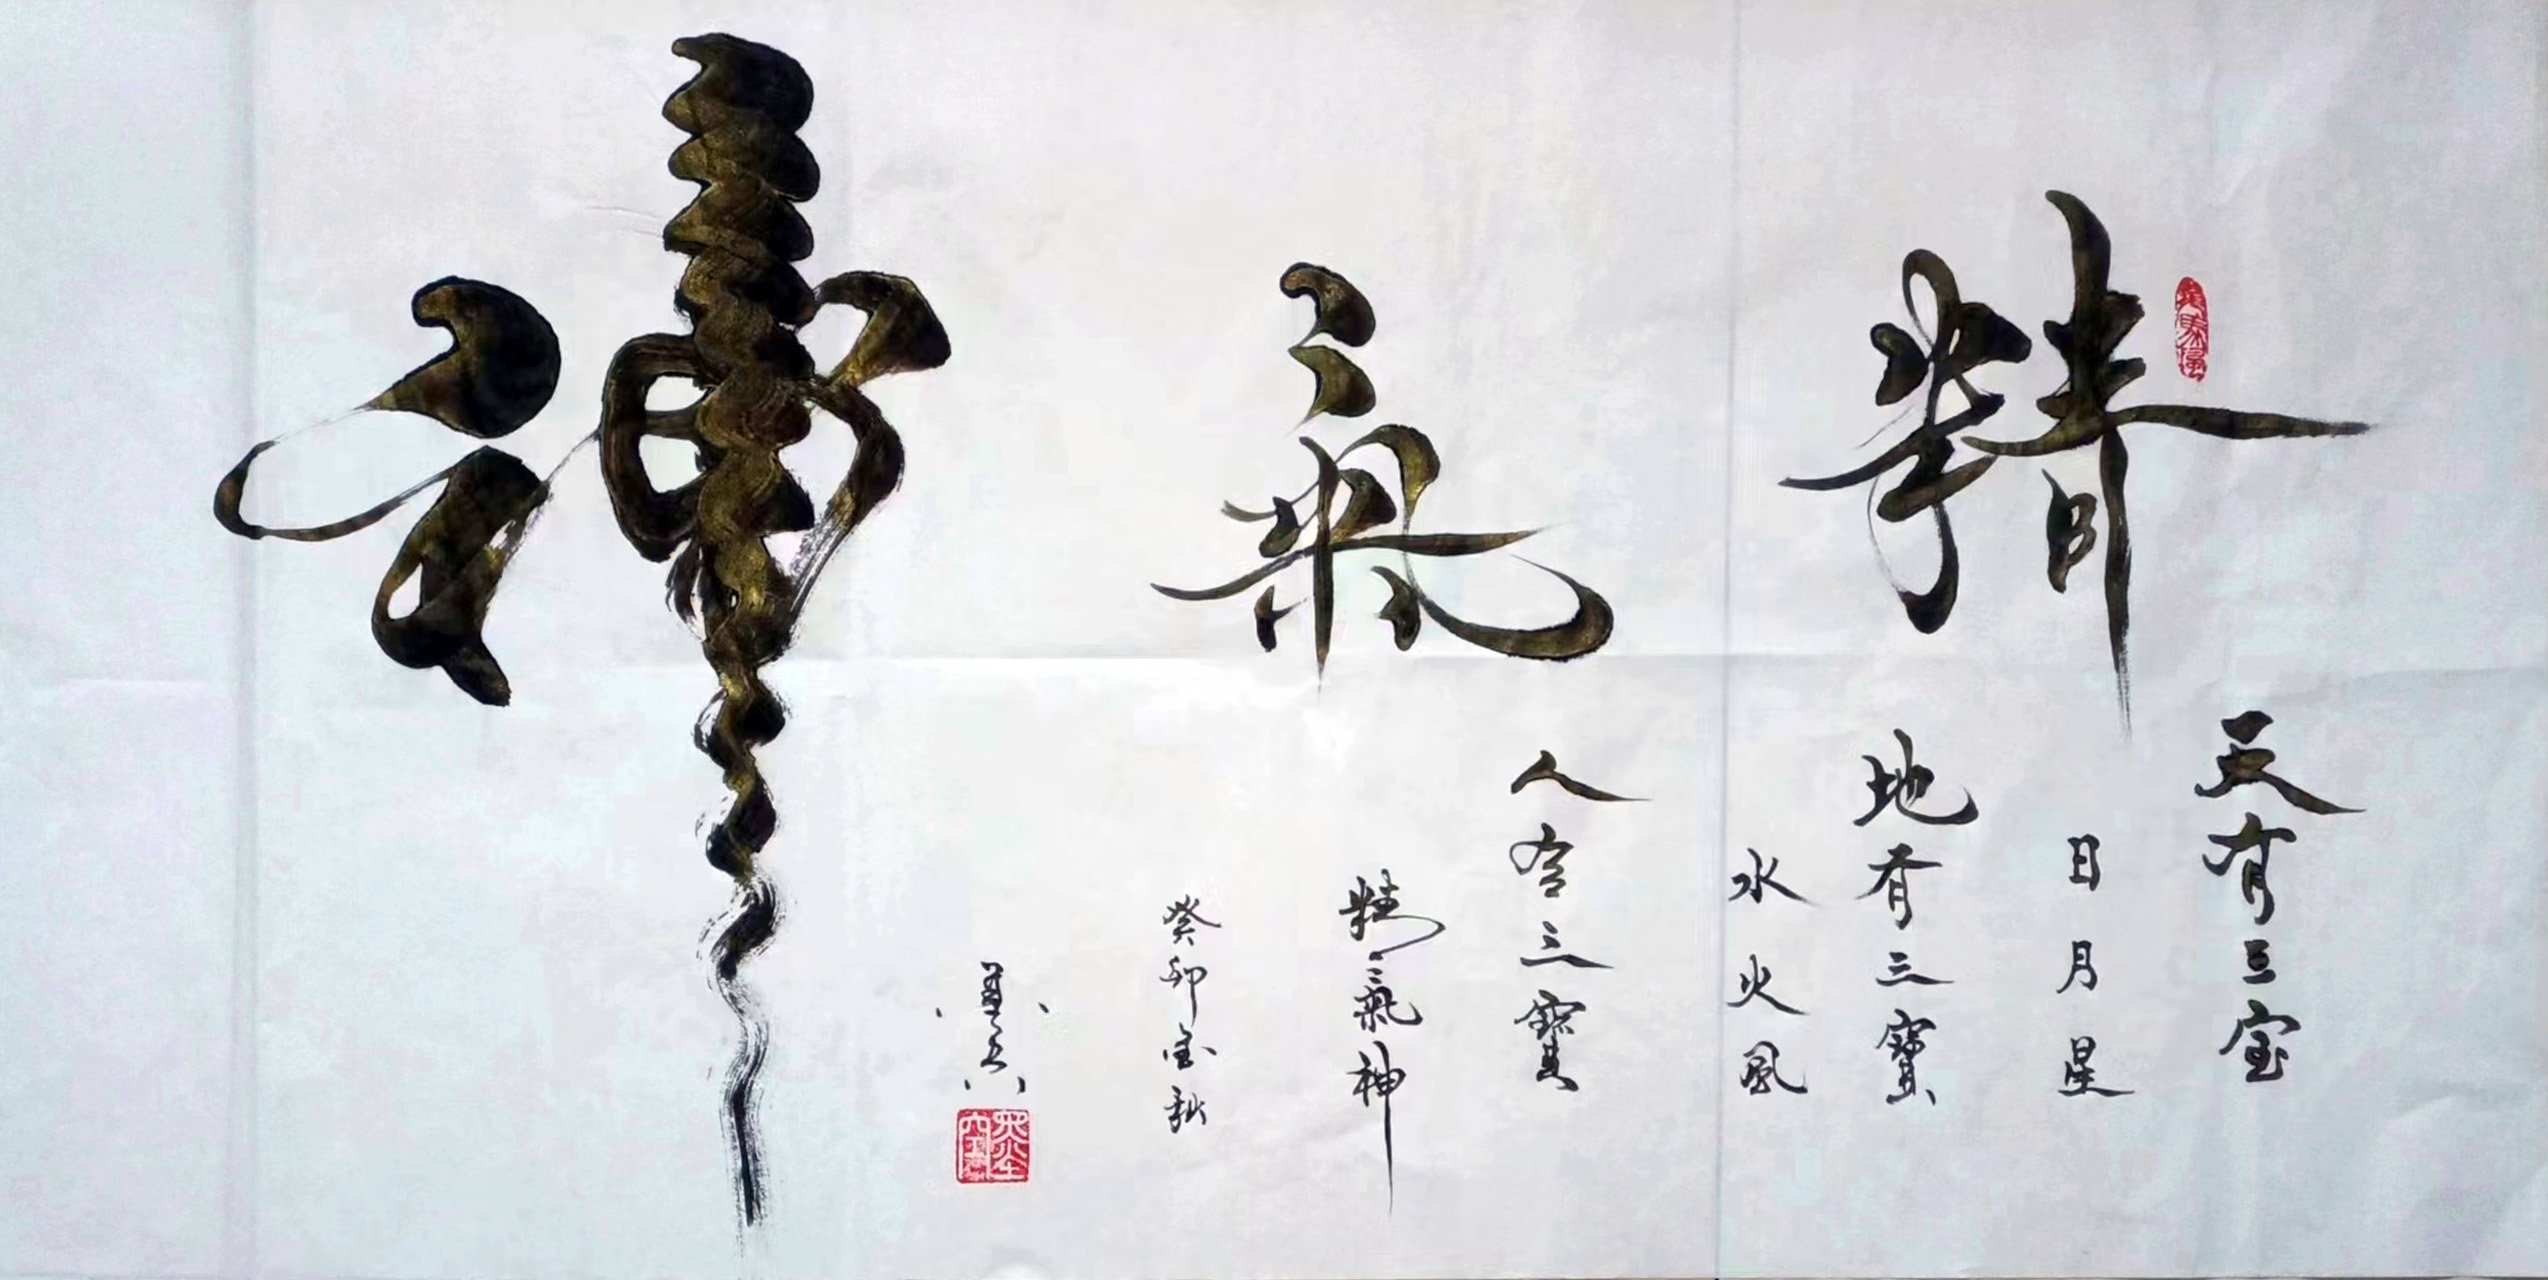 精氣神
天有三宝
日月星
地有三寳
水火风
人有三寳
精氣神
癸卯金秋